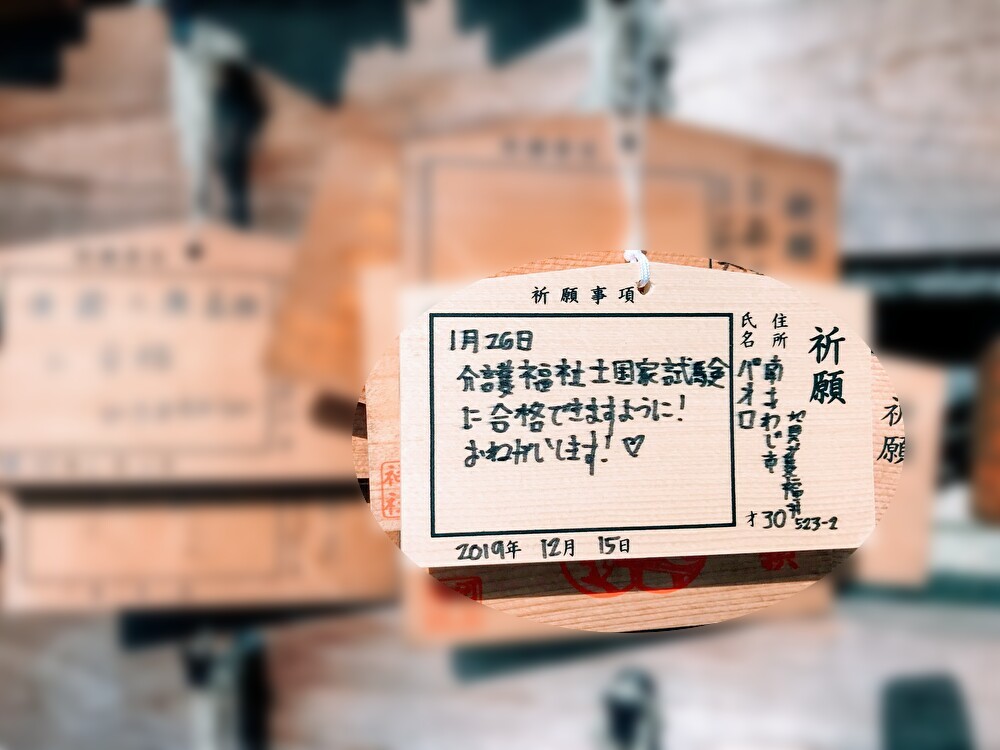 祈願事項
1月26日
介護福祉士国家試験
に合格できますように!
おねがいします!♡
2019年 12月 15日
祈願
住所
南あわじ市
523-2
氏名
パオロ
才30
祈願